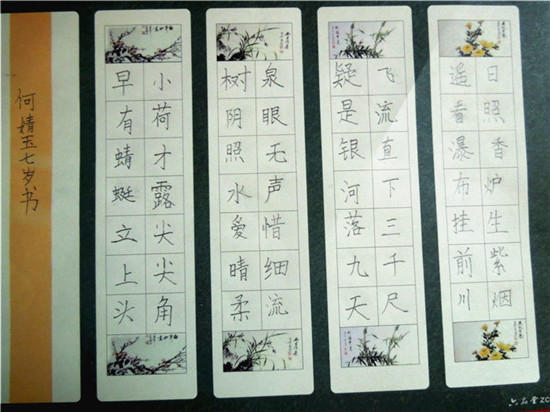 日照香炉生紫烟
遥看瀑布挂前川
飞流直下三千尺
疑是银河落九天
泉眼无声惜细流
树阴照水爱晴柔
小荷才露尖尖角
早有蜻蜓立上头
何婧玉七岁书